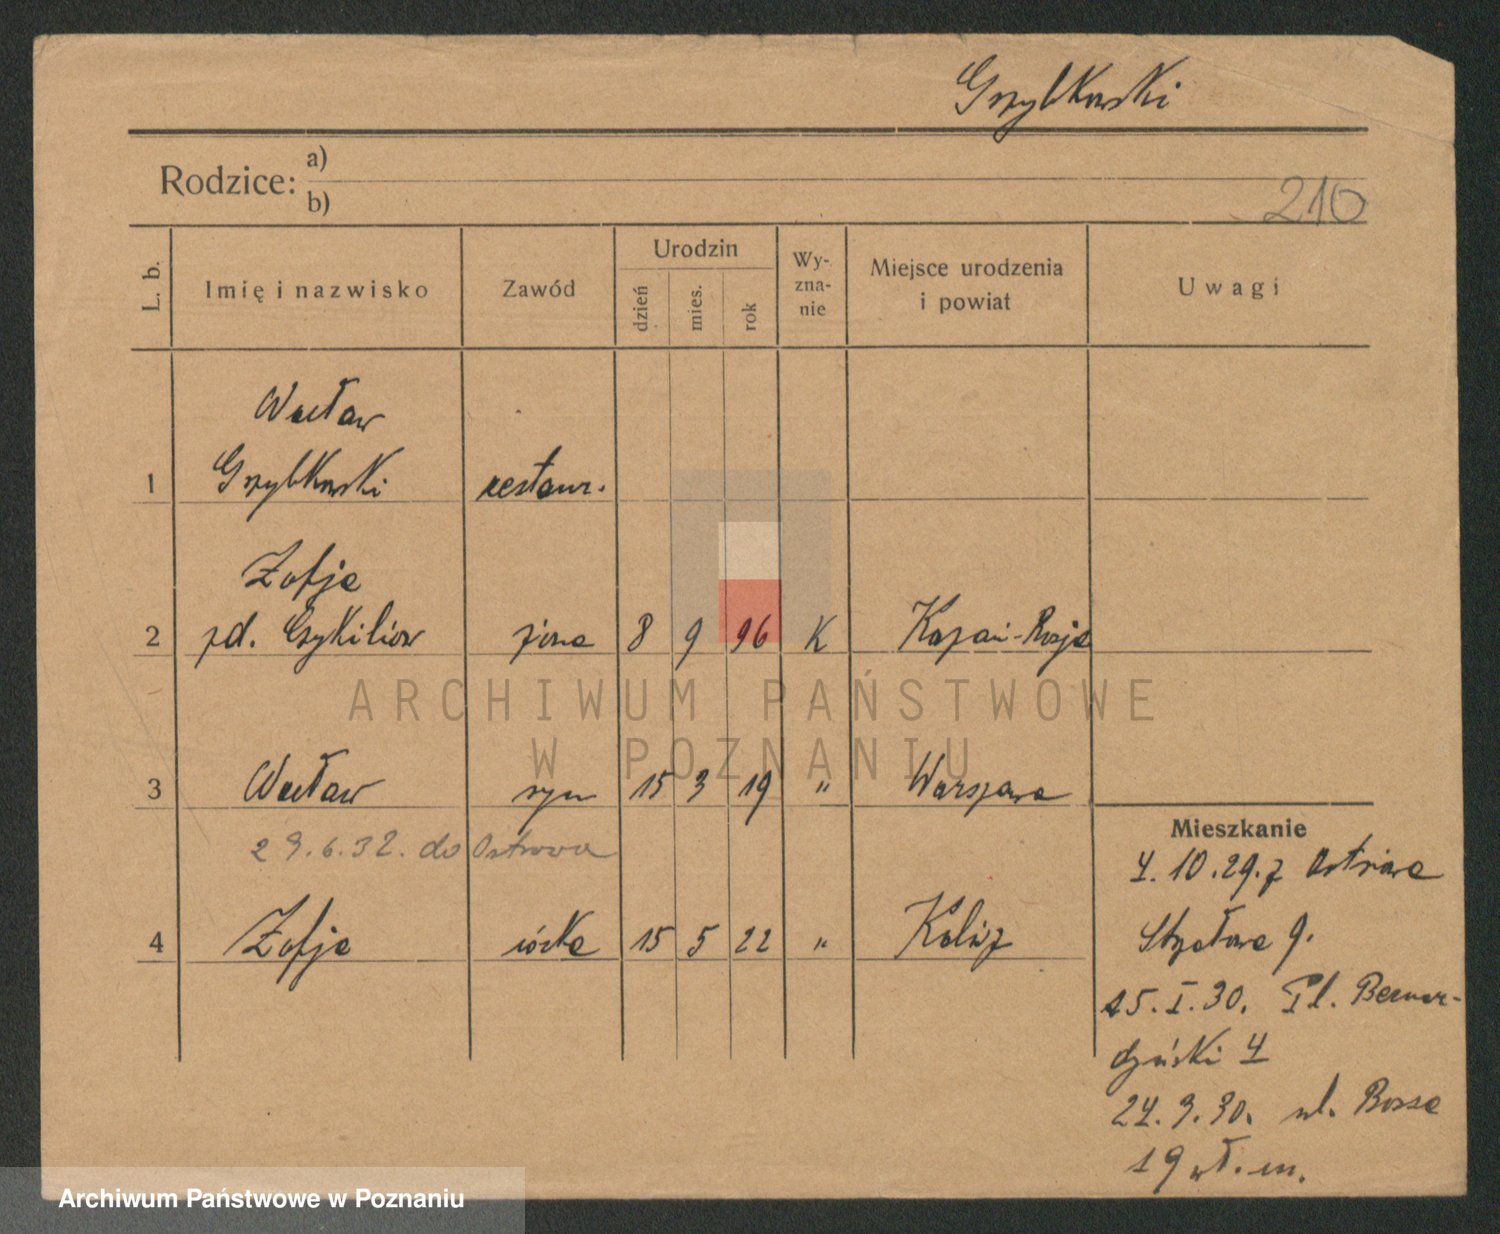 Grzybkowski
Rodzice:
a)
b)
210
L. b.
Imię i nazwisko
Zawód
Urodzin
dzień
mies.
rok
Wy-
zna-
nie
Miejsce urodzenia
i powiat
Uwagi
Wacław
1 Grzybkowski restaur.
Zofja
2 zd. żona 8 9 96 K Kazań-Rosja
ARCHIWUM PAŃSTWOWE
W POZNANIU
3 Wacław syn 15 3 19 " Warszawa
29.6.32. do Ostrowa
4 Zofja córka 15 5 22 " Kalisz
Mieszkanie
4.10.29. z Ostrowa
Strzałowa 9.
15.I.30. Pl. Bernar-
dyński 4
24.9.30. ul. Bossa
19 wł. m.
Archiwum Państwowe w Poznaniu